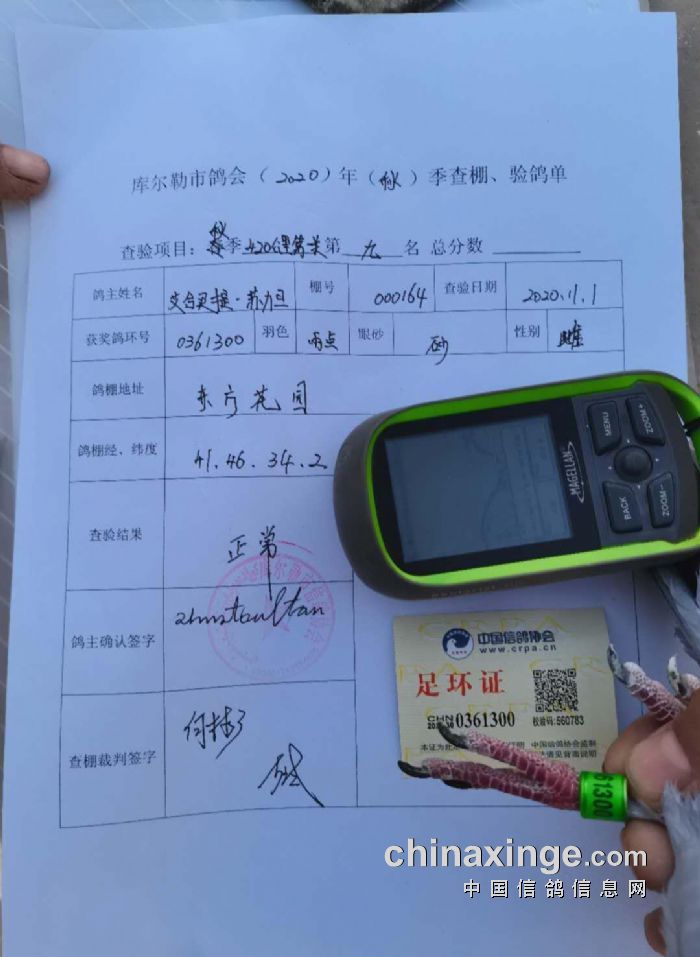 库尔勒市鸽会（2020）年（秋）季查棚、验鸽单
查验项目：秋季420公里第 九 名 总分数
鸽主姓名 棚号 000164 查验日期 2020.11.1
获奖鸽环号 0361300 羽色 雨点 眼砂 砂 性别 雌
鸽棚地址 东方花园
鸽棚经、纬度 41.46.34.2
查验结果 正常
鸽主确认签字
查棚裁判签字
MAGELLAN
MENU
ZOOM+
BACK
ZOOM-
中国信鸽协会
www.crpa.cn
足环证
CHN
0361300
校验码:560783
中国信鸽协会监制
61300
chinaxinge.com
中国信鸽信息网